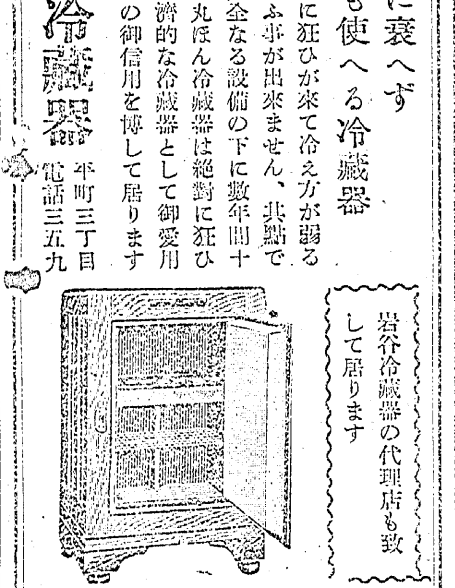 に衰へず
も使へる冷藏器
に狂ひが來て冷え方が弱る
ふ事が出來ません、其點で
全なる設備の下に數年間十
丸ほん冷藏器は絶對に狂ひ
濟的な冷藏器として御愛用
の御信用を博して居ります
冷藏器
平町三丁目
電話三五九
岩谷冷藏器の代理店も致
して居ります